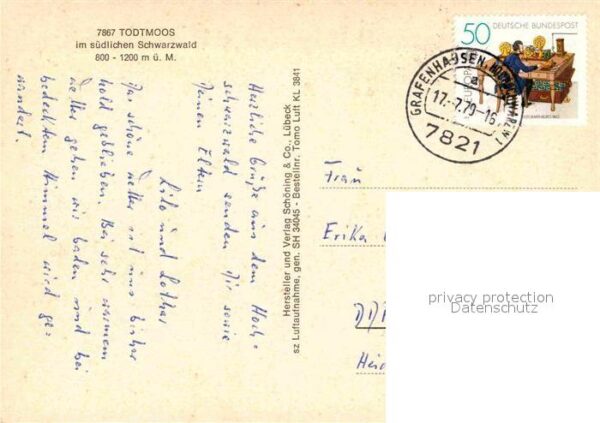 7867 TODTMOOS
im südlichen Schwarzwald
800 - 1200 m ü. M.
Herzliche Grüße aus dem Hoch-
schwarzwald senden Dir sowie
Deinen Eltern
Lilo und Lothar
Das schöne Wetter ist uns bisher
hold geblieben. Bei sehr warmem
Wetter gehen wir baden und bei
bedecktem Himmel wird ge-
wandert.
Hersteller und Verlag Schöning & Co., Lübeck
sz Luftaufnahme, gen. SH 34045 - Bestellnr. Tomo Luft KL 3841
50 DEUTSCHE BUNDESPOST
GRAFENHAUSEN, HOCHSCHWARZW
a
17.-7.79-16
7821
Frau
Erika
DDR
Heid
privacy protection
Datenschutz